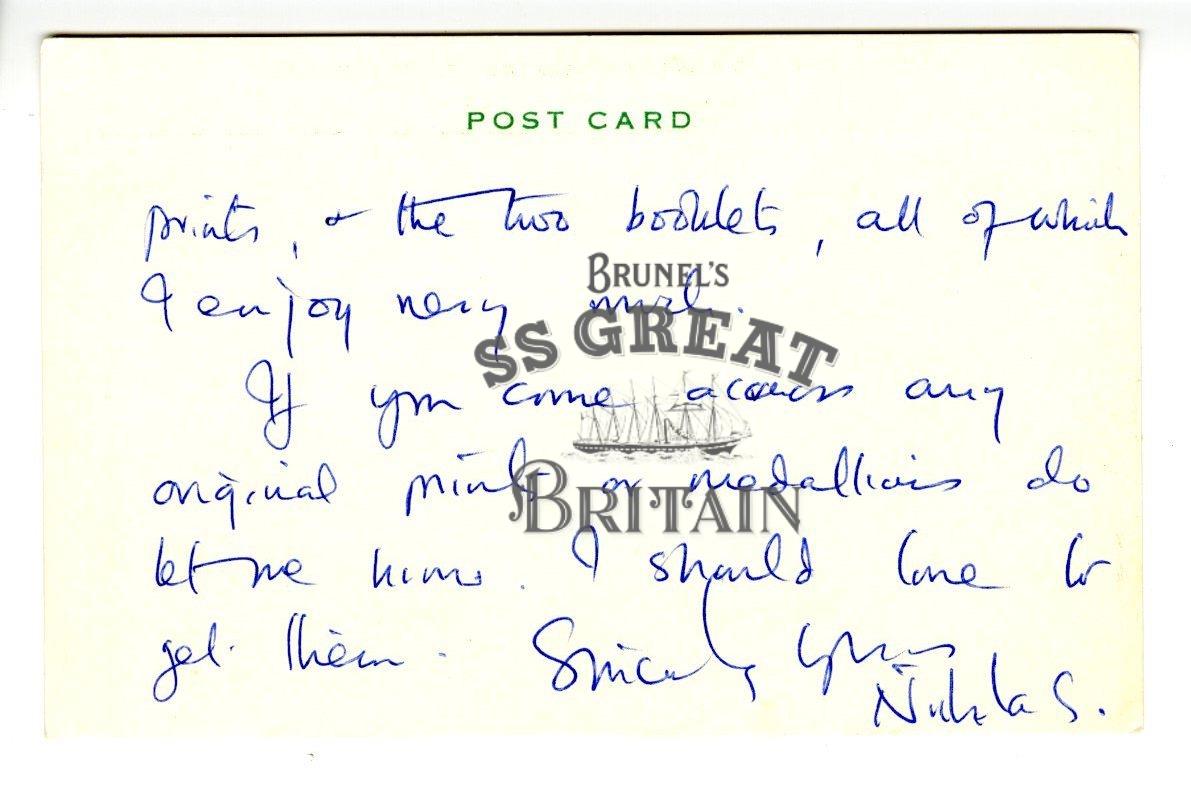 POST CARD
prints, & the two booklets, all of which
I enjoy very much.
BRUNEL'S
SS GREAT
BRITAIN
If you come across any
original prints or medallions do
let me know. I should love to
get them. Sincerely yours
S.